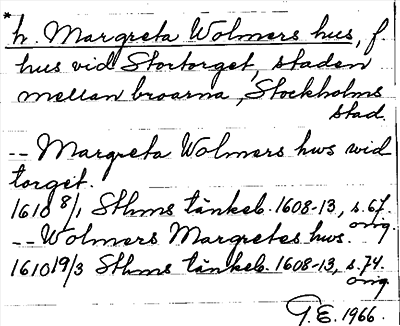 * h. Margreta Wolmers hus, f.
hus vid Stortorget, staden
mellan broarna, Stockholms
stad.
-- Margreta Wolmers hws wid
torget.
1610 8/1 Sthms tänkeb. 1608-13, s. 67.
orig.
-- Wolmers Margretes hws.
1610 19/3 Sthms tänkeb. 1608-13, s. 74.
orig.
G.E. 1966.